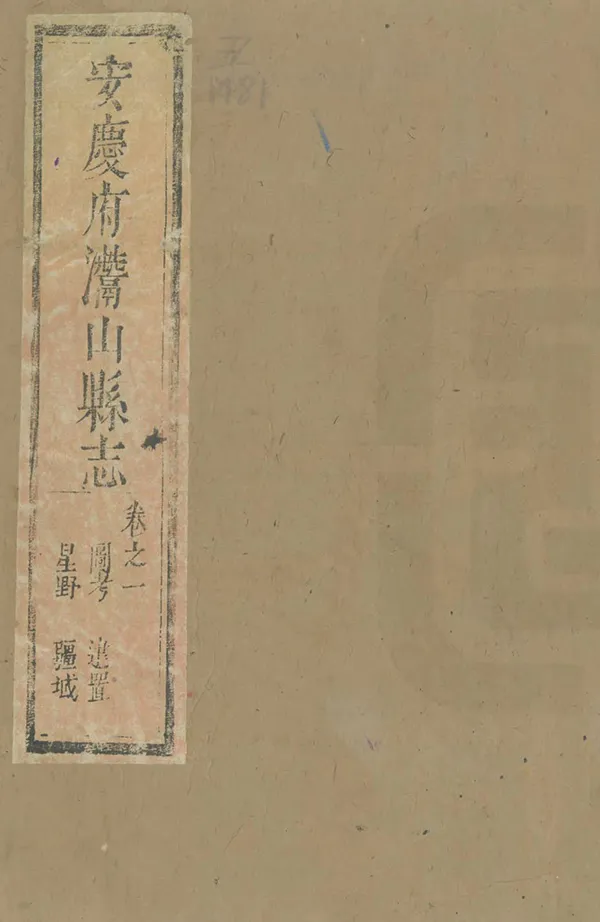 安慶府灊山縣志
卷之一
圖考 建置
星野 疆域
五
1481